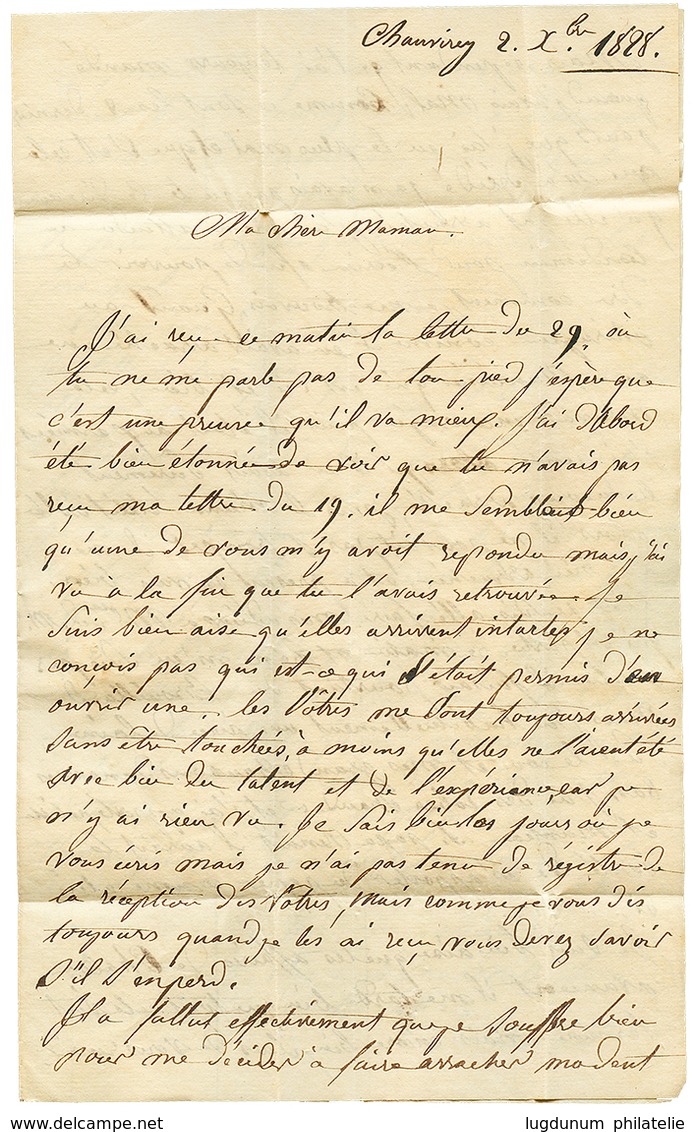 Chauvirey 2. Xbre. 1828.
Ma chère Maman.
J'ai reçu ce matin la lettre du 29, où
tu ne me parle pas de ton pied j'espère que
c'est une preuve qu'il va mieux. J'ai d'abord
été bien étonnée de voir que tu n'avais pas
reçu ma lettre du 19. il me semblait bien
qu'une de vous m'y avoit repondu mais j'ai
vu à la fin que tu l'avais retrouvée. Je
suis bien aise qu'elles arrivent intactes je ne
conçois pas qui est-ce qui s'était permis d'en
ouvrir une, les vôtres me sont toujours arrivées
sans être touchées, à moins qu'elles ne l'aient été
avec bien du talent et de l'expérience, car je
n'y ai rien vu. Je sais bien les jours où je
vous écris mais je n'ai pas tenu de régistre de
la réception des vôtres, mais comme je vous dis
toujours quand je les ai reçu, vous devez savoir
s'il s'en perd.
Il a fallut effectivement que je souffre bien
pour me décider à faire arracher ma dent
www.delcampe.net
lugdunum philatelie